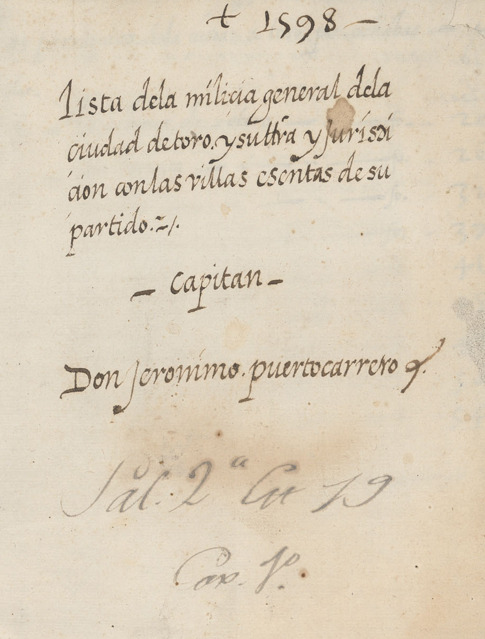 † 1598 —
lista dela milicia general dela
ciudad de toro. y su ttrã y Jurisdi
cion con las villas esentas de su
partido.
— Capitan —
Don Jeronimo. puertocarrero
Sal. 2ª Cit 19